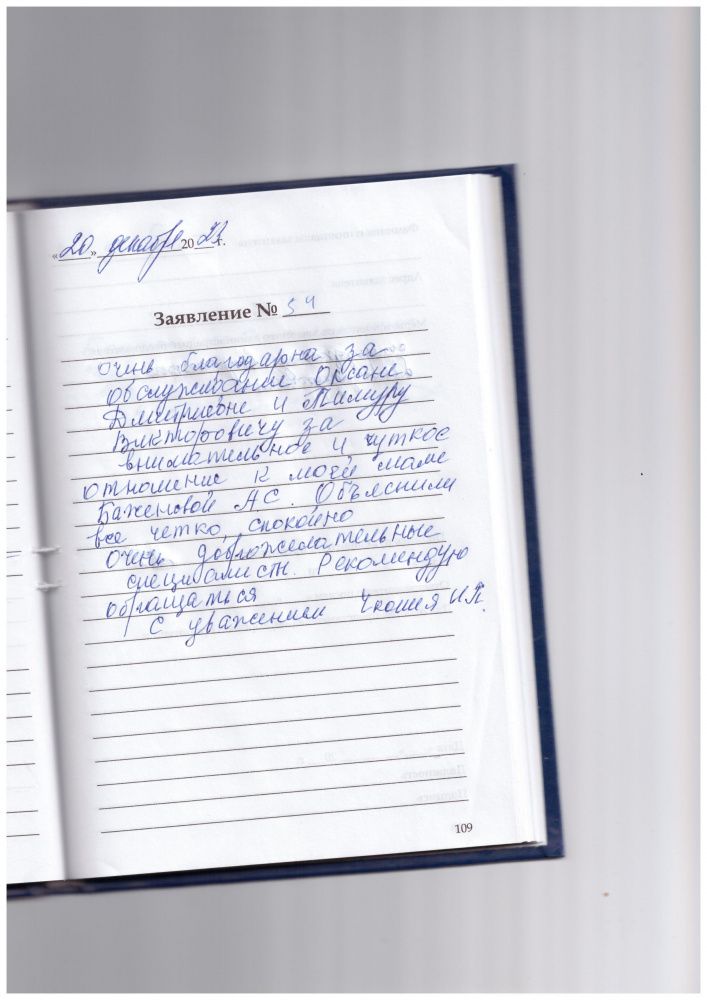 «20» декабре 2023г.
Заявление № 54
Очень благодарна за
обслуживание Оксане
Дмитриевне и Тимуру
Викторовичу за
внимательное и чуткое
отношение к моей маме
Баженовой А.С. Объяснили
все четко, спокойно
Очень доброжелательные
специалисты. Рекомендую
обращаться
С уважением И.П.
109